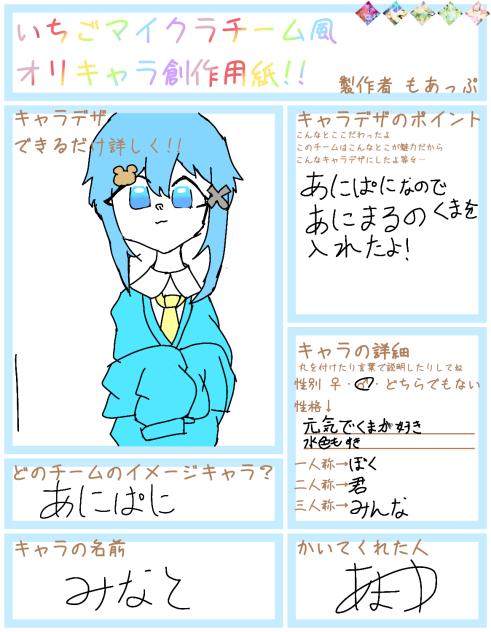 いちごマイクラチーム風
オリキャラ創作用紙!!
製作者 もあっぷ
キャラデザ
できるだけ詳しく!!
キャラデザのポイント
こんなとここだわったよ
このチームはこんなとこが魅力だから
こんなキャラデザにしたよ等々…
あにぱになので
あにまるのくまを
入れたよ!
キャラの詳細
丸を付けたり言葉で説明したりしてね
性別 ♀・♂・どちらでもない
性格↓
元気でくまが好き
水色もすき
一人称→ぼく
二人称→君
三人称→みんな
どのチームのイメージキャラ?
あにぱに
キャラの名前
みなと
かいてくれた人